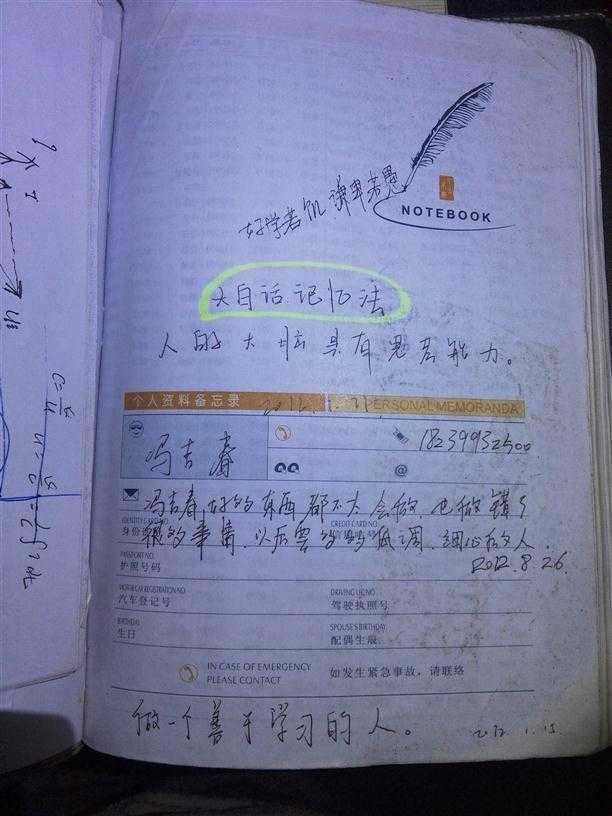 好学若饥 谦卑若愚
NOTEBOOK
大白话记忆法
人的大脑具有思考能力。
个人资料备忘录
PERSONAL MEMORANDA
冯吉春
18239932500
@
冯吉春,好的东西都不大会做,也做错了
很多事情,以后要
低调,细心的人.
2012.8.26
IDENTITY CARD NO.
身份
CREDIT CARD NO.
PASSPORT NO.
护照号码
MOTOR CAR REGISTRATION NO.
汽车登记号
DRIVING LIC NO.
驾驶执照号
BIRTHDAY
生日
SPOUSE'S BIRTHDAY
配偶生辰
IN CASE OF EMERGENCY
PLEASE CONTACT
如发生紧急事故，请联络
做一个善于学习的人。
2012.1.15